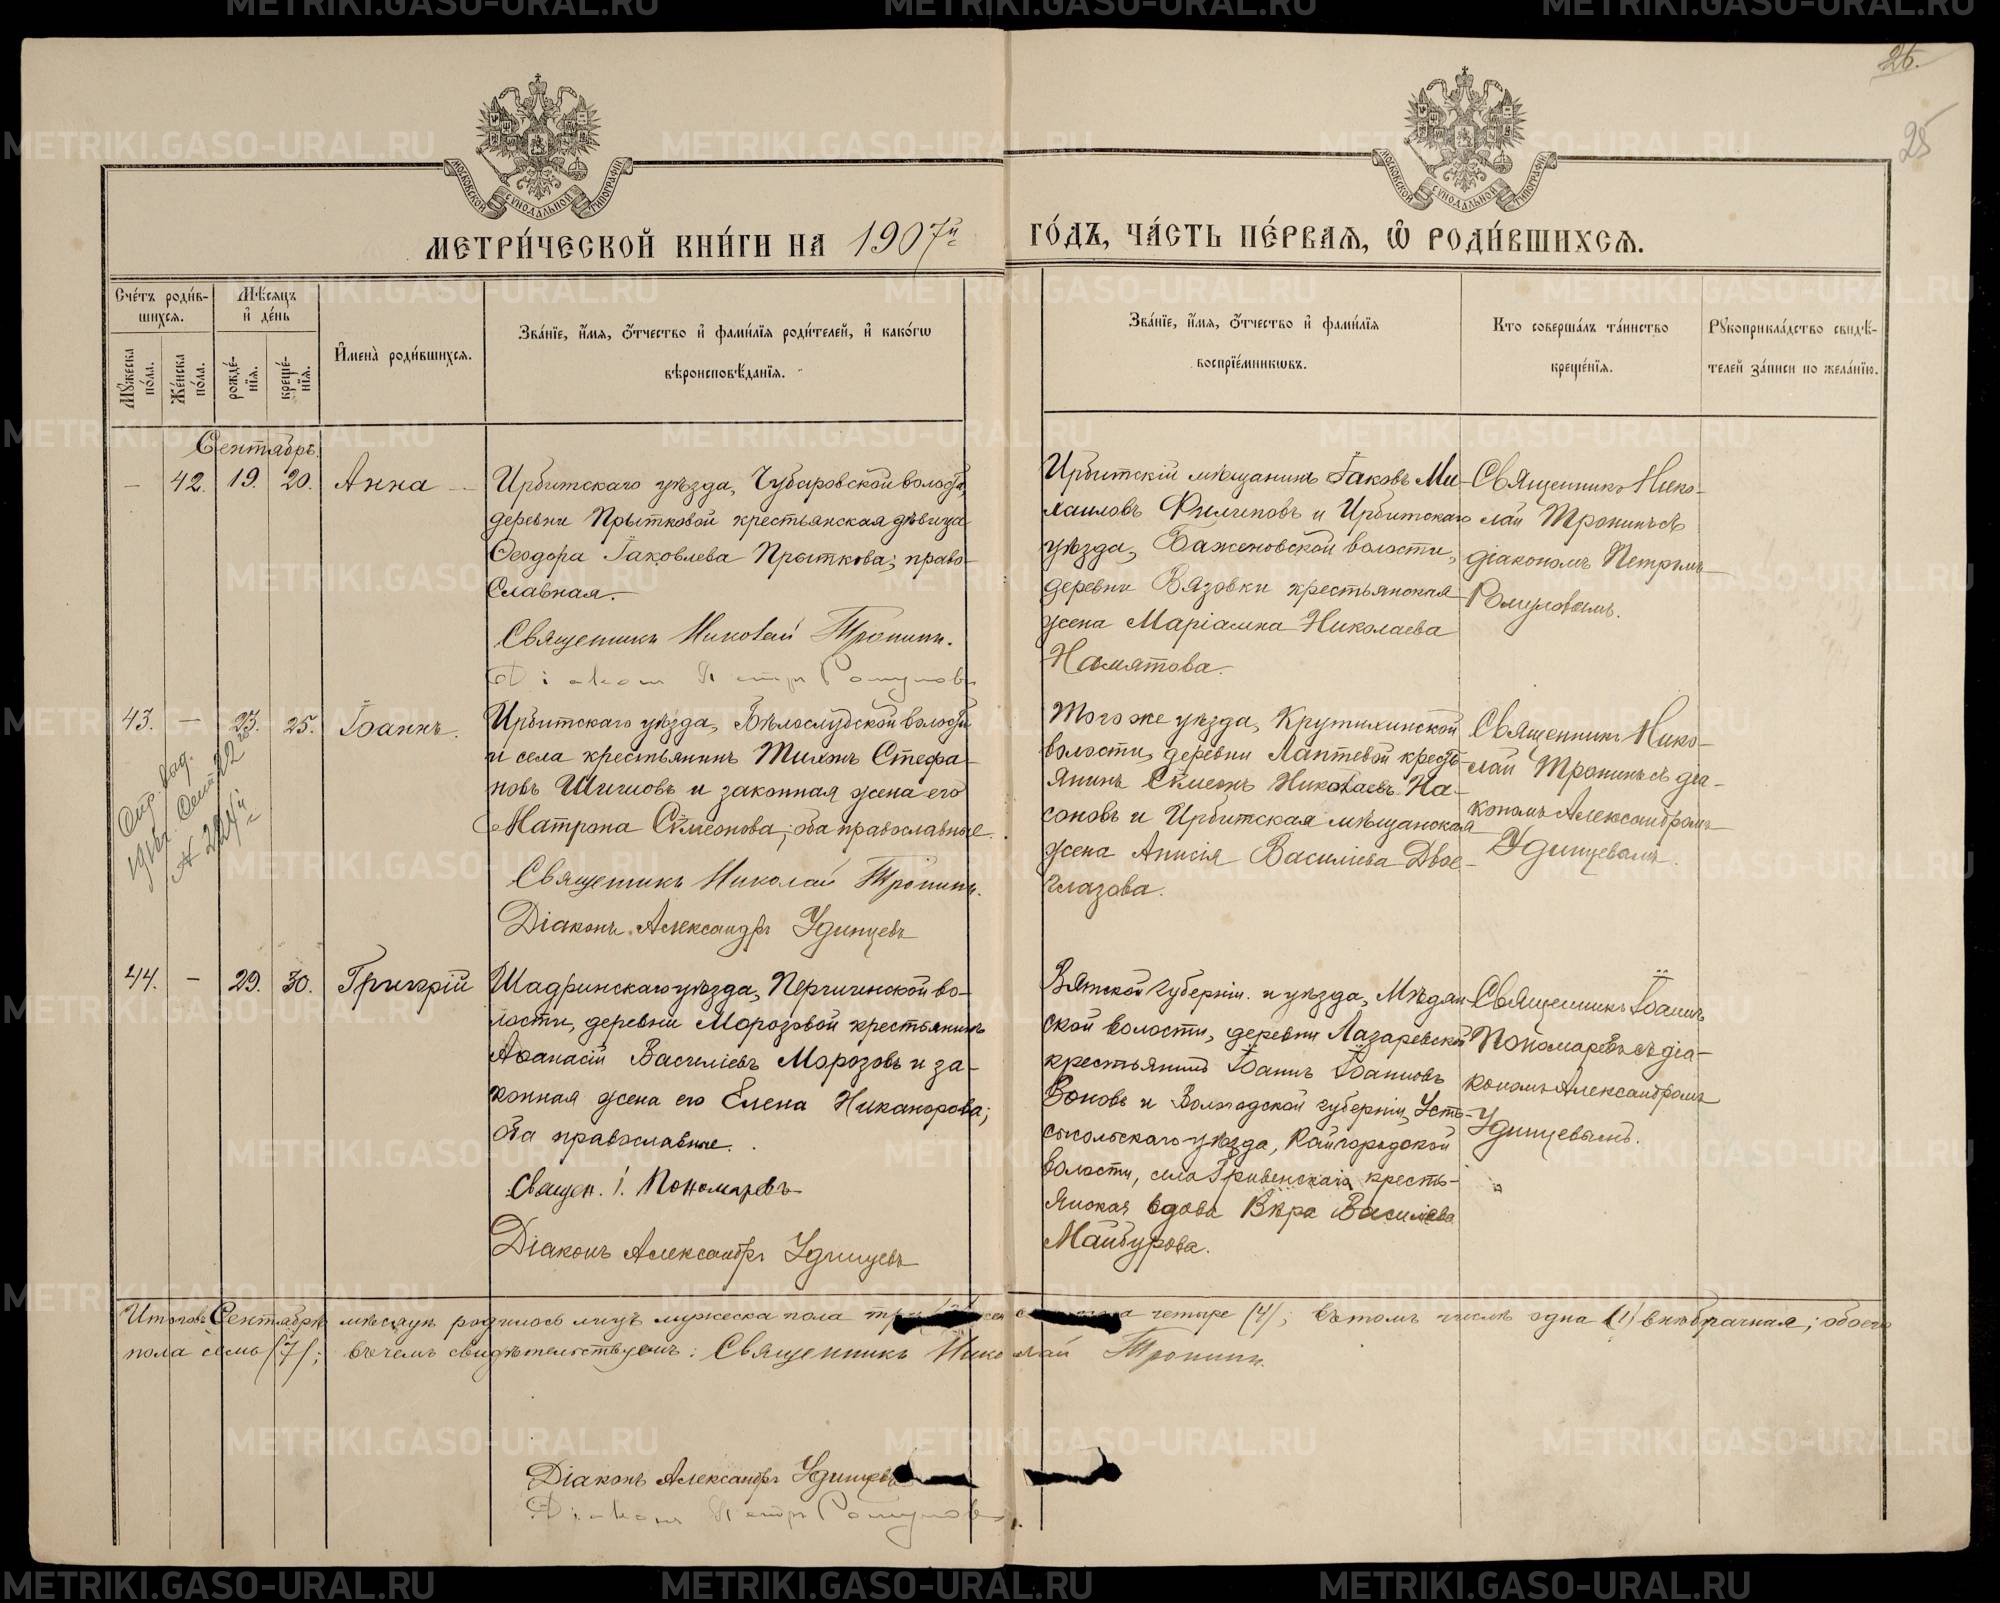 26.
25
МОСКОВСКОЙ СѴНОДАЛЬНОЙ ТИПОГРАФІИ
МОСКОВСКОЙ СѴНОДАЛЬНОЙ ТИПОГРАФІИ
МЕТРИ́ЧЕСКОЙ КНИ́ГИ НА 1907й ГО́ДЪ, ЧА́СТЬ ПЕ́РВАЯ, Ѡ РОДИ́ВШИХСѦ.
Сче́тъ роди́в-
шихсѧ.
Мꙋ́жеска по́ла.
Же́нска по́ла.
Мѣ́сѧцъ и҆ де́нь
рожде́-
нїѧ.
креще́-
нїѧ.
И҆мена̀ роди́вшихсѧ.
Зва́нїе, и҆́мѧ, ѻ҆́тчество и҆ фами́лїѧ роди́телей, и҆ како́гѡ
вѣроисповѣ́данїѧ.
Зва́нїе, и҆́мѧ, ѻ҆́тчество и҆ фами́лїѧ
воспрїе́мникѡвъ.
Кто̀ соверша́лъ та́инство
креще́нїѧ.
Рꙋкоприкла́дство свидѣ́-
телей за́писи по жела́нїю.
Сентябрь.
— 42. 19. 20. Анна —
Ирбитскаго уѣзда, Чубаровской волости,
деревни Прытковой крестьянская дѣвица
Ѳеодора Іаковлева Прыткова; право-
славная.
Священникъ Николай Тропинъ.
Діаконъ Петръ Ромуловъ
Ирбитскій мѣщанинъ Іаковъ Ми-
хаиловъ Филиповъ и Ирбитскаго
уѣзда, Баженовской волости,
деревни Вязовки крестьянская
жена Маріамна Николаева
Намятова.
Священникъ Нико-
лай Тропинъ съ
діакономъ Петромъ
Ромуловымъ.
43. — 23. 25. Іоаннъ.
Ирбитскаго уѣзда, Бѣлослудской волости
и села крестьянинъ Тихонъ Стефа-
новъ Шишовъ и законная жена его
Матрона Сѵмеонова; оба православные.
Священникъ Николай Тропинъ.
Діаконъ Александръ Удинцевъ
Того же уѣзда, Крутихинской
волости, деревни Лаптевой кресть-
янинъ Сѵмеонъ Николаевъ На-
соновъ и Ирбитская мѣщанская
жена Анисія Василіева Двое-
глазова.
Священникъ Нико-
лай Тропинъ съ діа-
кономъ Александромъ
Удинцевымъ.
44. — 29. 30. Григорій
Шадринскаго уѣзда, Першинской во-
лости, деревни Морозовой крестьянинъ
Аѳанасій Василіевъ Морозовъ и за-
конная жена его Елена Никанорова;
оба православные.
Священ. І. Пономаревъ
Діаконъ Александръ Удинцевъ
Вятской губерніи и уѣзда, Медян-
ской волости, деревни Лазаревской
крестьянинъ Іоаннъ Іоанновъ
Воковъ и Вологодской губерніи, Усть-
сысольскаго уѣзда, Кайгородской
волости, села Гривенскаго кресть-
янская вдова Вѣра Василіева
Майбурова.
Священникъ Іоаннъ
Пономаревъ съ діа-
кономъ Александромъ
Удинцевымъ.
Итого въ Сентябрѣ мѣсяцѣ родилось лицъ мужеска пола три четыре (4); въ томъ числѣ одна (1) внѣбрачная; обоего
пола семь (7); въ чемъ свидѣтельствуемъ: Священникъ Николай Тропинъ.
Діаконъ Александръ Удинцевъ
Діаконъ Петръ Ромуловъ
METRIKI.GASO-URAL.RU